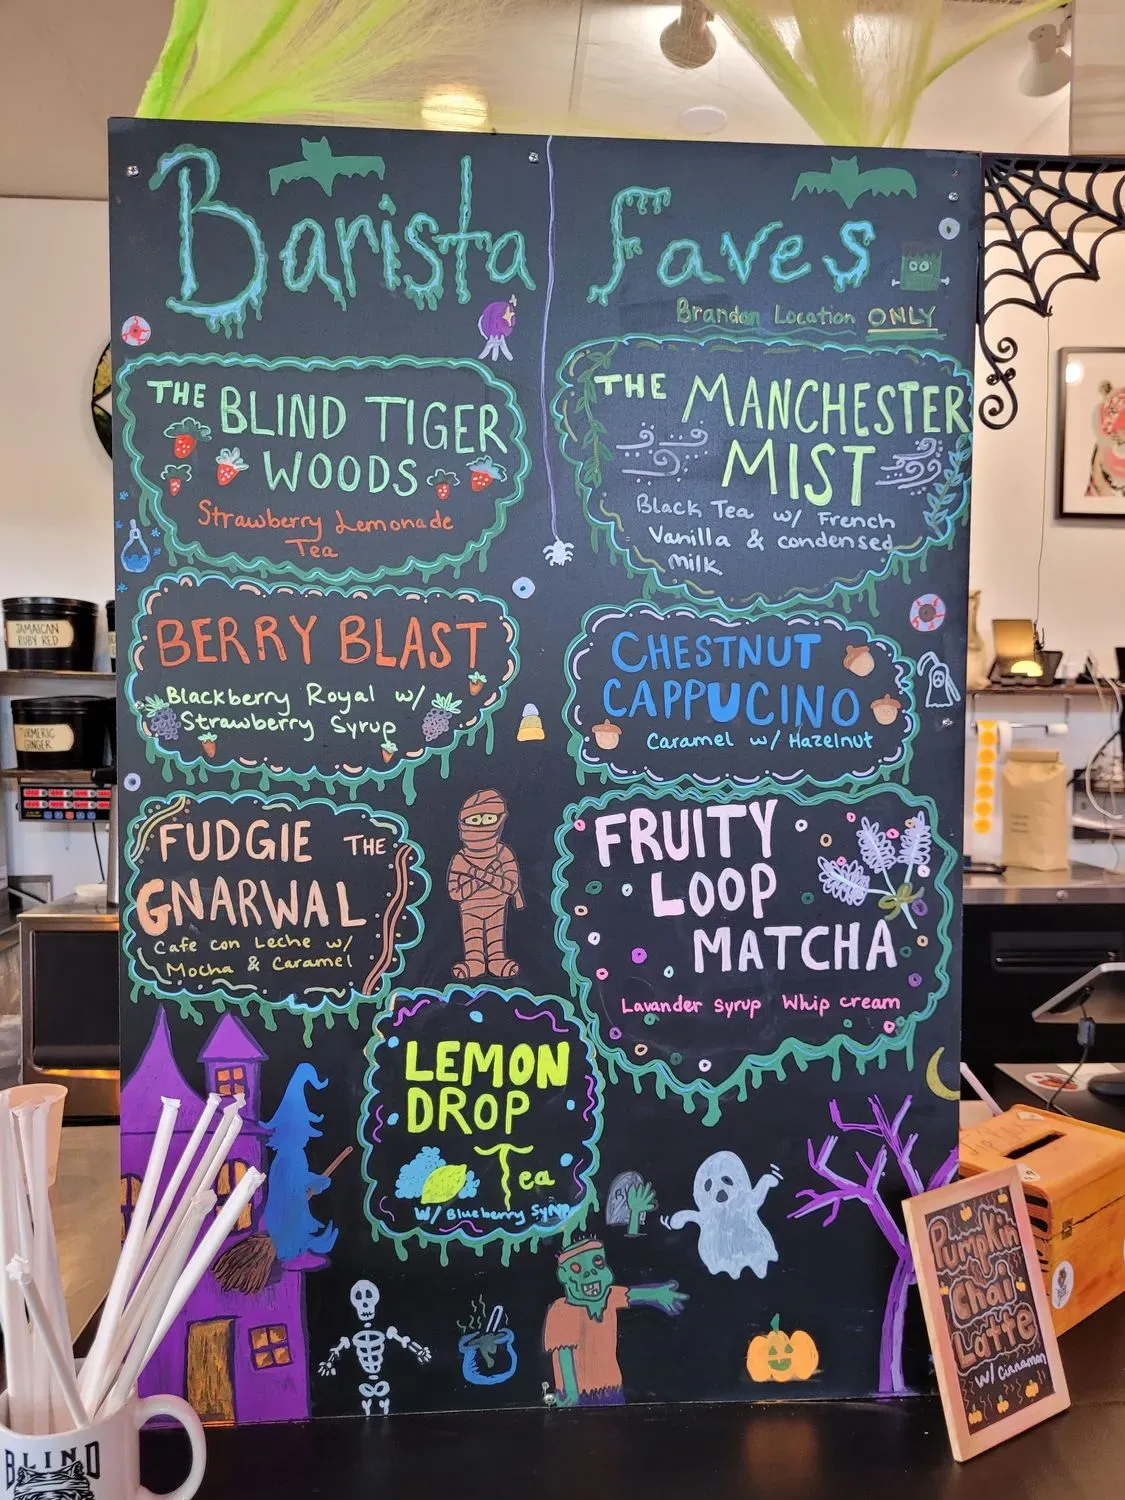 Barista Faves
Brandon Location ONLY
THE BLIND TIGER
WOODS
Strawberry Lemonade
Tea
THE MANCHESTER
MIST
Black Tea w/ French
Vanilla & condensed
milk
BERRY BLAST
Blackberry Royal w/
Strawberry Syrup
CHESTNUT
CAPPUCINO
Caramel w/ Hazelnut
FUDGIE THE
GNARWAL
Cafe con Leche w/
Mocha & Caramel
FRUITY
LOOP
MATCHA
Lavander syrup Whip cream
LEMON
DROP
Tea
W/ Blueberry Syrup
Pumpkin
Chai
Latte
w/ Cinnamon
JAMAICAN
RUBY RED
TURMERIC
GINGER
BLIND